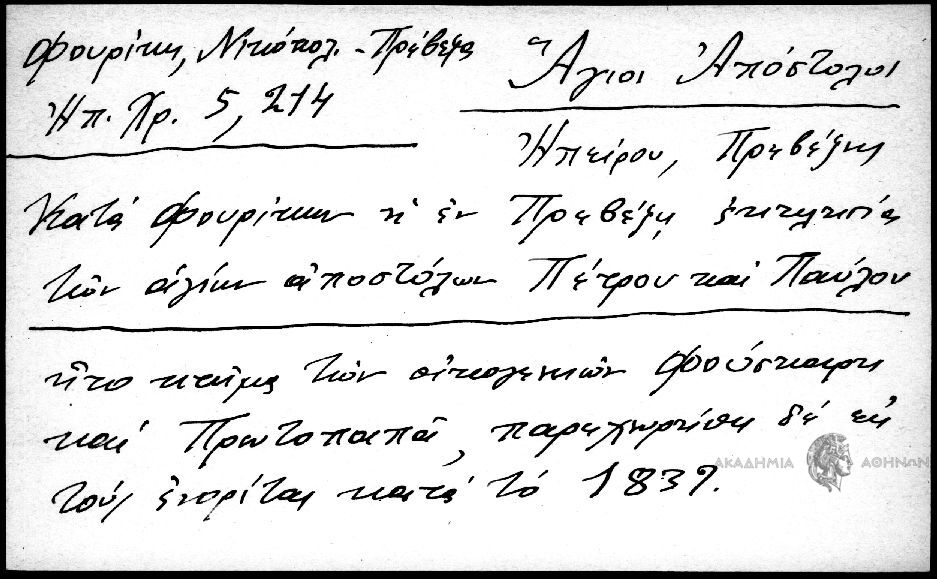 Φουρίκη, Νικόπολ. - Πρέβεζα
Ἠπ. Χρ. 5, 214
Ἅγιοι Ἀπόστολοι
Ἠπείρου, Πρεβέζης
Κατά Φουρίκην ἡ ἐν Πρεβέζῃ ἐκκλησία
τῶν ἁγίων ἀποστόλων Πέτρου καί Παύλου
ἦτο κτῆμα τῶν οἰκογενειῶν Φούσκαρη
καί Πρωτοπαπᾶ, παρεχωρήθη δέ εἰς
τούς ἐνορίτας κατά τό 1839.
ΑΚΑΔΗΜΙΑ ΑΘΗΝΩΝ